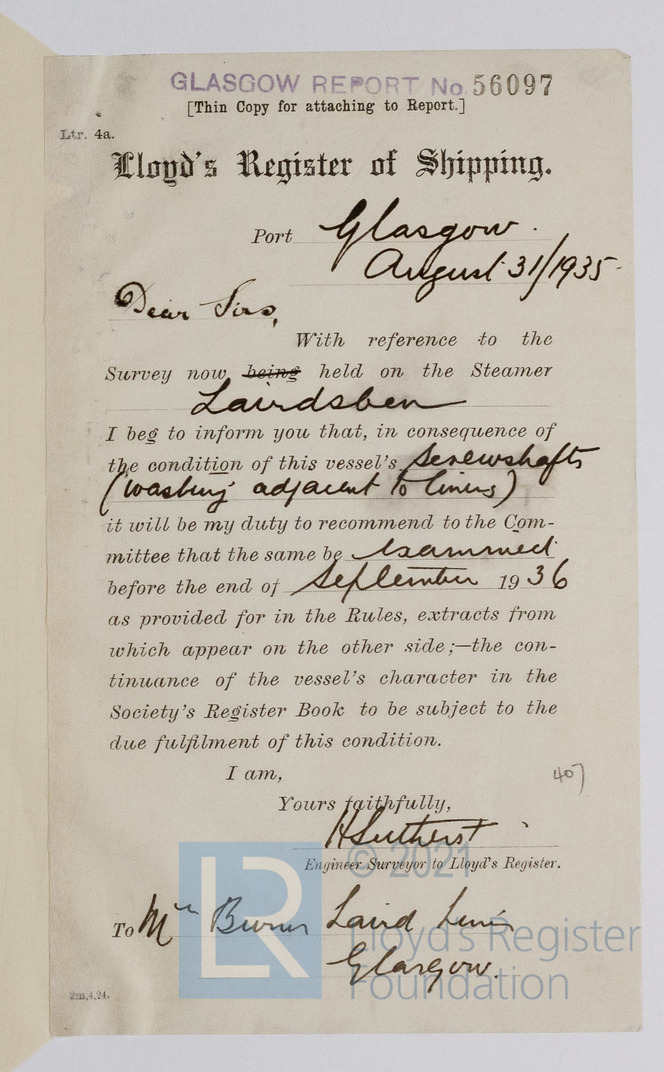 GLASGOW REPORT No 56097
[Thin Copy for attaching to Report.]
Ltr. 4a.
Lloyd's Register of Shipping.
Port Glasgow.
August 31/1935
Dear Sirs,
With reference to the
Survey now being held on the Steamer
Lairdsben
I beg to inform you that, in consequence of
the condition of this vessel's Screwshafts
(wasting adjacent to liners)
it will be my duty to recommend to the Com-
mittee that the same be examined
before the end of September 1936
as provided for in the Rules, extracts from
which appear on the other side;—the con-
tinuance of the vessel's character in the
Society's Register Book to be subject to the
due fulfilment of this condition.
I am,
407
Yours faithfully,
H Sutherst
© 2021
Engineer Surveyor to Lloyd's Register.
To Mrs Burns Laird Lines
Glasgow.
LR
Lloyd's Register
Foundation
2m,4,24.